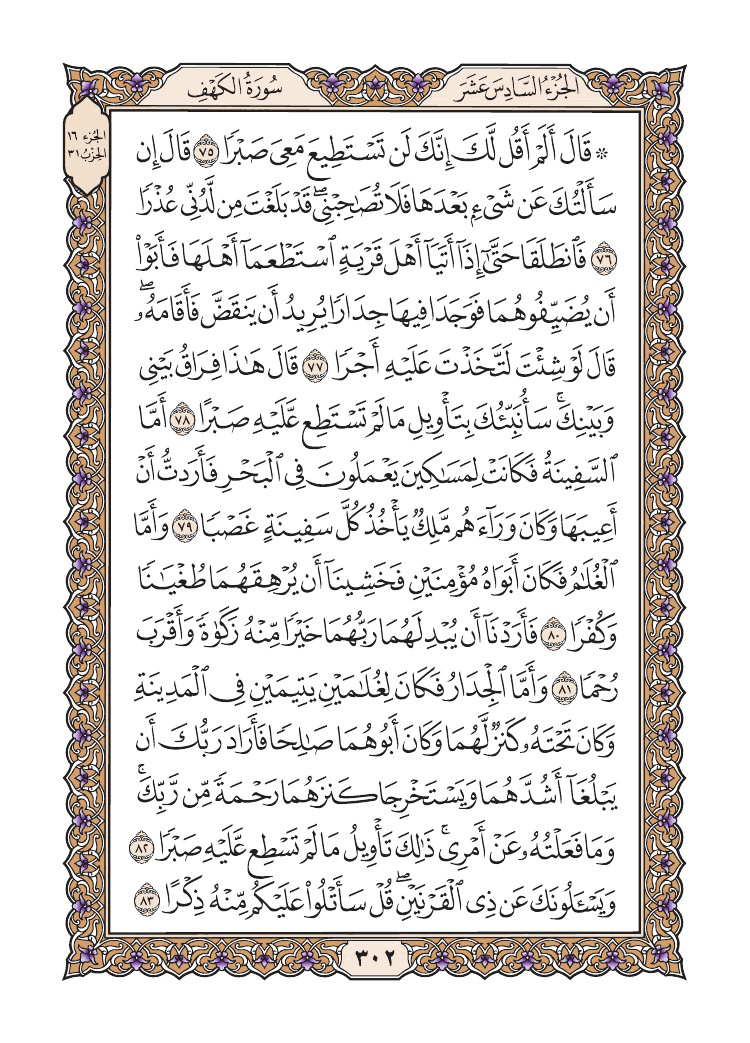 الجُزْءُ السَّادِسَ عَشَرَ
سُورَةُ الكَهْفِ
الجُزء ١٦
الحِزْبُ ٣١
۞ قَالَ أَلَمْ أَقُل لَّكَ إِنَّكَ لَن تَسْتَطِيعَ مَعِىَ صَبْرًا ٧٥ قَالَ إِن
سَأَلْتُكَ عَن شَىْءٍۭ بَعْدَهَا فَلَا تُصَٰحِبْنِى ۖ قَدْ بَلَغْتَ مِن لَّدُنِّى عُذْرًا
٧٦ فَٱنطَلَقَا حَتَّىٰٓ إِذَآ أَتَيَآ أَهْلَ قَرْيَةٍ ٱسْتَطْعَمَآ أَهْلَهَا فَأَبَوْا۟
أَن يُضَيِّفُوهُمَا فَوَجَدَا فِيهَا جِدَارًا يُرِيدُ أَن يَنقَضَّ فَأَقَامَهُۥ ۖ
قَالَ لَوْ شِئْتَ لَتَّخَذْتَ عَلَيْهِ أَجْرًا ٧٧ قَالَ هَٰذَا فِرَاقُ بَيْنِى
وَبَيْنِكَ ۚ سَأُنَبِّئُكَ بِتَأْوِيلِ مَا لَمْ تَسْتَطِع عَّلَيْهِ صَبْرًا ٧٨ أَمَّا
ٱلسَّفِينَةُ فَكَانَتْ لِمَسَٰكِينَ يَعْمَلُونَ فِى ٱلْبَحْرِ فَأَرَدتُّ أَنْ
أَعِيبَهَا وَكَانَ وَرَآءَهُم مَّلِكٌ يَأْخُذُ كُلَّ سَفِينَةٍ غَصْبًا ٧٩ وَأَمَّا
ٱلْغُلَٰمُ فَكَانَ أَبَوَاهُ مُؤْمِنَيْنِ فَخَشِينَآ أَن يُرْهِقَهُمَا طُغْيَٰنًا
وَكُفْرًا ٨٠ فَأَرَدْنَآ أَن يُبْدِلَهُمَا رَبُّهُمَا خَيْرًا مِّنْهُ زَكَوٰةً وَأَقْرَبَ
رُحْمًا ٨١ وَأَمَّا ٱلْجِدَارُ فَكَانَ لِغُلَٰمَيْنِ يَتِيمَيْنِ فِى ٱلْمَدِينَةِ
وَكَانَ تَحْتَهُۥ كَنزٌ لَّهُمَا وَكَانَ أَبُوهُمَا صَٰلِحًا فَأَرَادَ رَبُّكَ أَن
يَبْلُغَآ أَشُدَّهُمَا وَيَسْتَخْرِجَا كَنزَهُمَا رَحْمَةً مِّن رَّبِّكَ ۚ
وَمَا فَعَلْتُهُۥ عَنْ أَمْرِى ۚ ذَٰلِكَ تَأْوِيلُ مَا لَمْ تَسْطِع عَّلَيْهِ صَبْرًا ٨٢
وَيَسْـَٔلُونَكَ عَن ذِى ٱلْقَرْنَيْنِ ۖ قُلْ سَأَتْلُوا۟ عَلَيْكُم مِّنْهُ ذِكْرًا ٨٣
٣٠٢